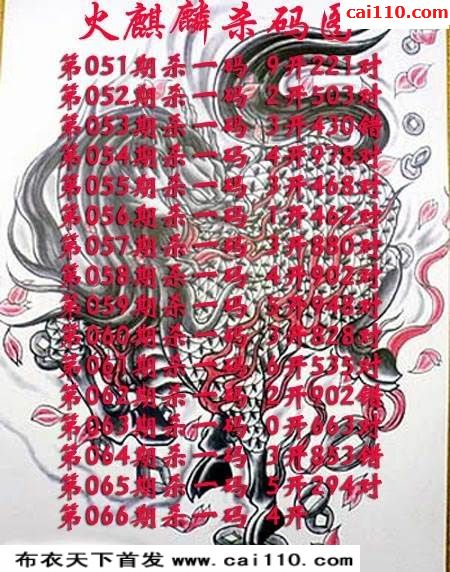 cai110.com
火麒麟杀码图
第051期杀一码 9开221对
第052期杀一码 2开503对
第053期杀一码 3开430错
第054期杀一码 4开978对
第055期杀一码 3开468对
第056期杀一码 1开462对
第057期杀一码 3开880对
第058期杀一码 4开902对
第059期杀一码 5开948对
第060期杀一码 3开828对
第061期杀一码 6开535对
第062期杀一码 2开902错
第063期杀一码 0开663对
第064期杀一码 3开853错
第065期杀一码 5开294对
第066期杀一码 4开
布衣天下首发 www.cai110.com